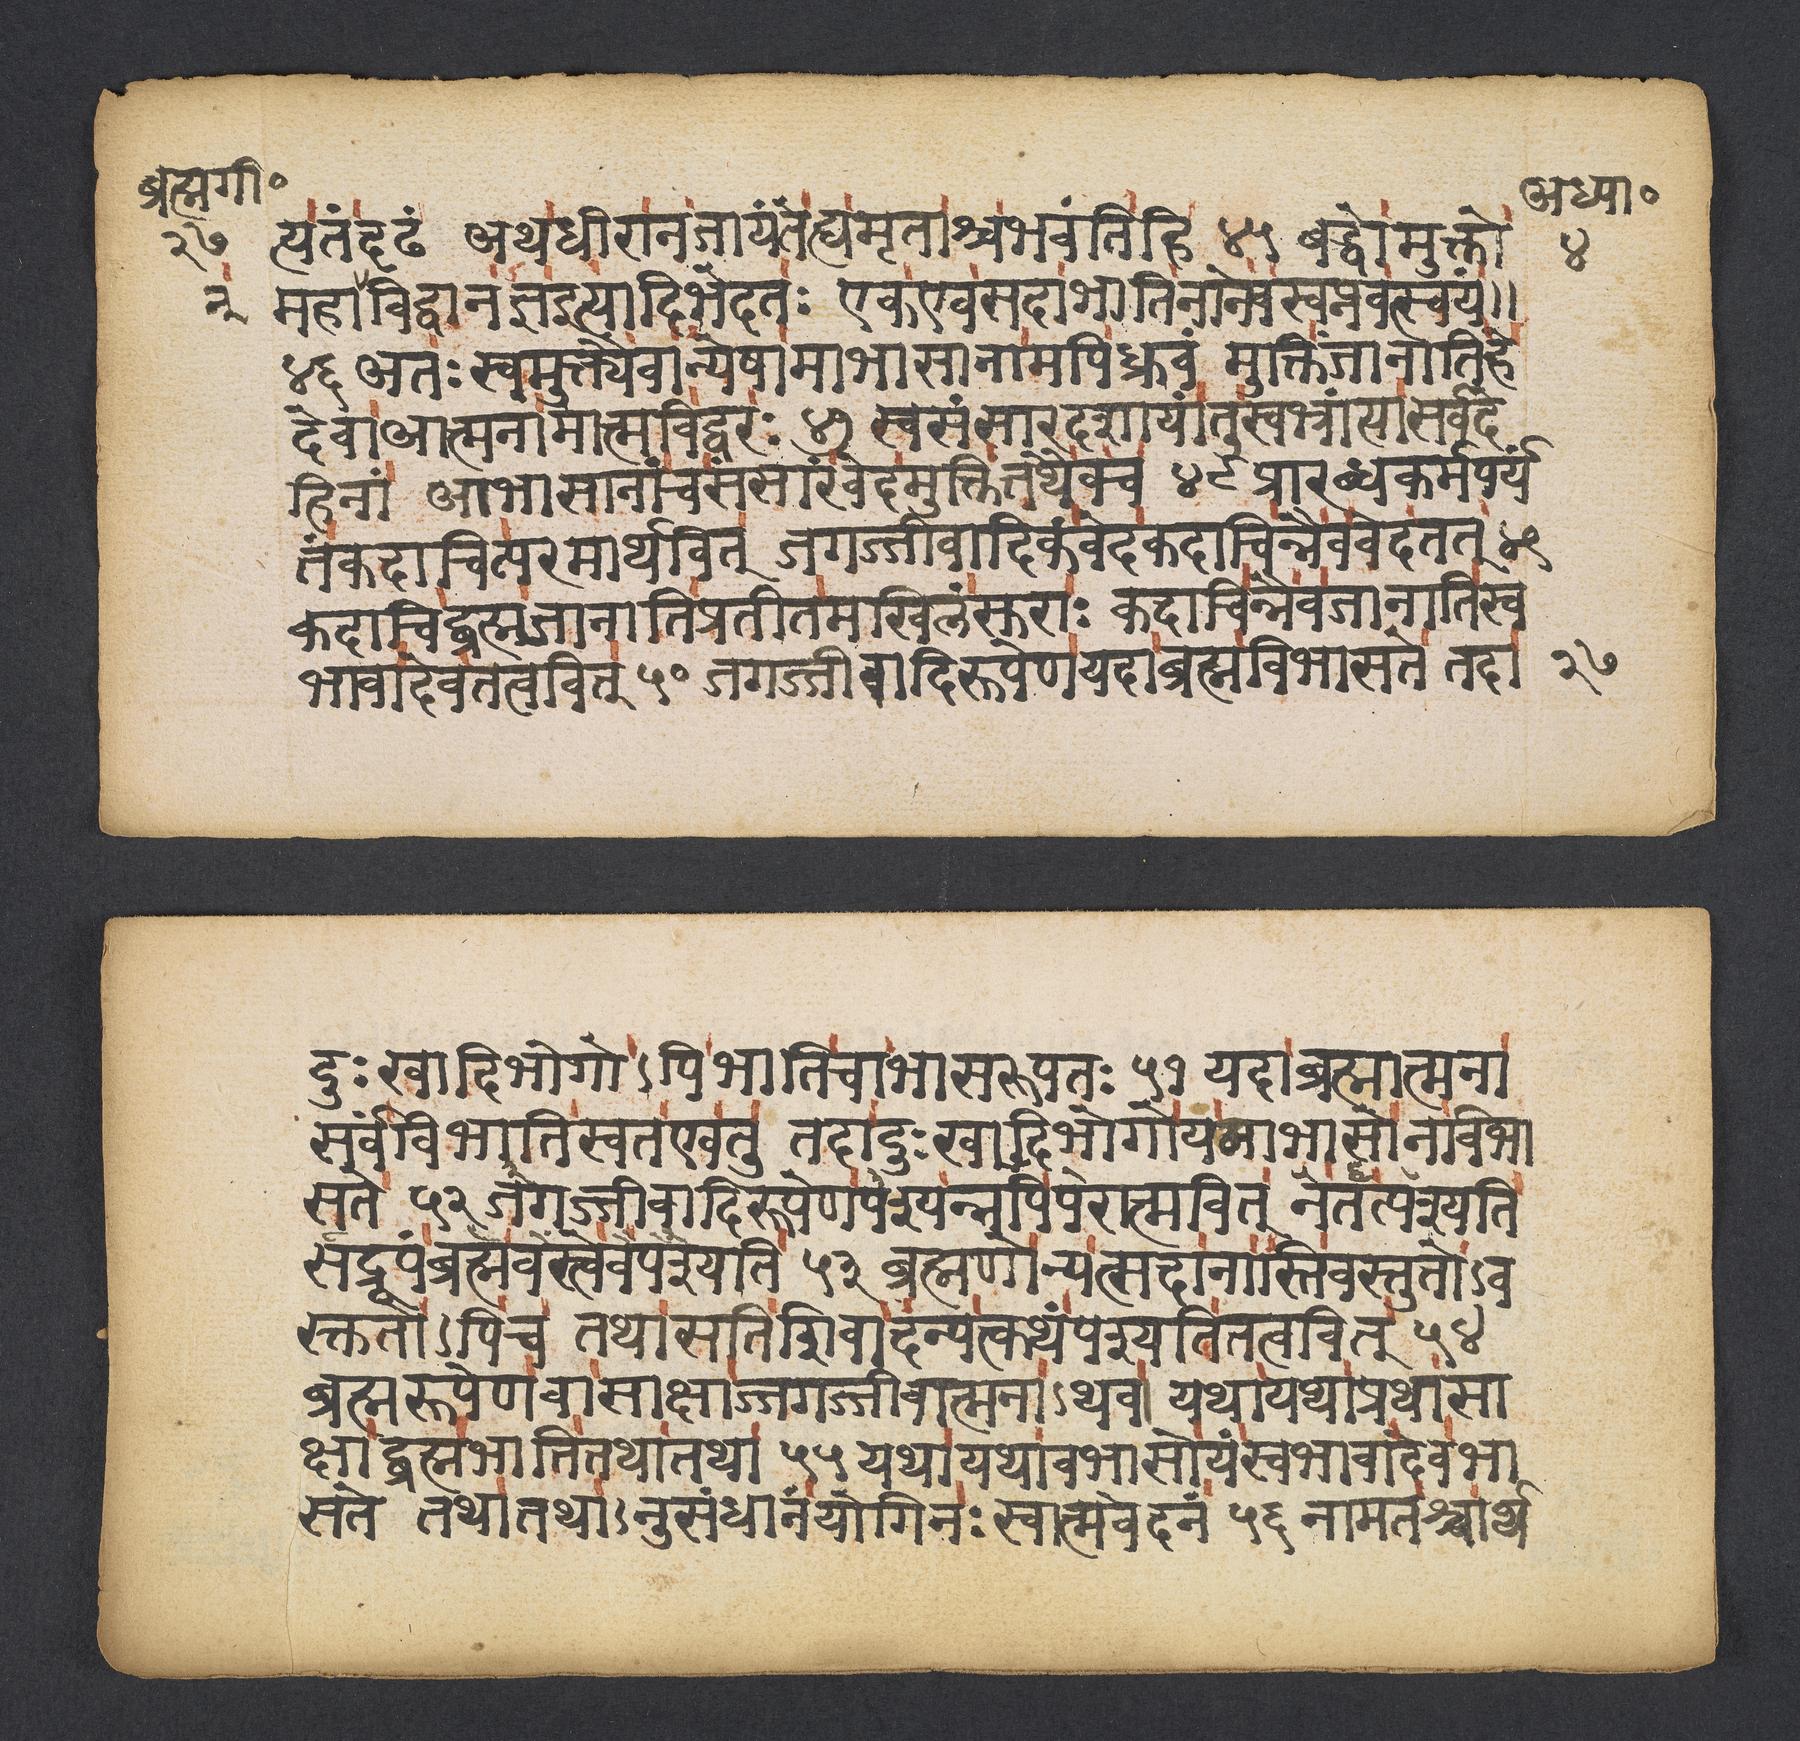 ब्रह्मगी॰
अध्या॰
२७
४
त्यतंदृढं अथधीरानजायंतेह्यमृताश्चभवंतिहि ४५ बद्धोमुक्तो
महाविद्वानज्ञइत्यादिभेदतः एकएवसदाभातिनानेवस्वप्नवत्स्वयं॥
न्
४६ अतःस्वमुक्त्यैवान्येषामाभासानामपिध्रुवं मुक्तिंजानातिहे
देवाआत्मनामात्मविद्वरः ४७ स्वसंसारदशायांतुस्वभ्रांत्यासर्वदे
हिनां आभासानांचसंसारंवेदमुक्तिंतथैवच ४८ प्रारब्धकर्मपर्यं
तंकदाचित्परमार्थवित् जगज्जीवादिकंवेदकदाचिन्नैववेदतत् ४९
कदाचिद्ब्रह्मजानातिप्रतीतमखिलंसुराः कदाचिन्नैवजानातिस्व
भावादेवतत्ववित् ५० जगज्जीवादिरूपेणयदाब्रह्मविभासते तदा
२७
दुःखादिभोगोऽपिभातिचाभासरूपतः ५१ यदाब्रह्मात्मना
सर्वंविभातिस्वतएवतु तदादुःखादिभोगोयमाभासोनविभा
सते ५२ जगज्जीवादिरूपेणपश्यन्नपिपरात्मवित् नतत्पश्यति
सद्रूपंब्रह्मवस्त्वेवपश्यति ५३ ब्रह्मणोन्यत्सदानास्तिवस्तुतोऽव
स्तुतोऽपिच तथासतिशिवादन्यत्कथंपश्यतितत्ववित् ५४
ब्रह्मरूपेणवासाक्षाज्जगज्जीवात्मनाऽथवा यथायथाप्रथासा
क्षाद्ब्रह्मभातितथातथा ५५ यथायथावभासोयंस्वभावादेवभा
सते तथातथाऽनुसंधानंयोगिनःस्वात्मवेदनं ५६ नामतश्चार्थ